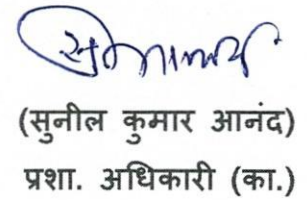 (सुनील कुमार आनंद)
प्रशा. अधिकारी (का.)